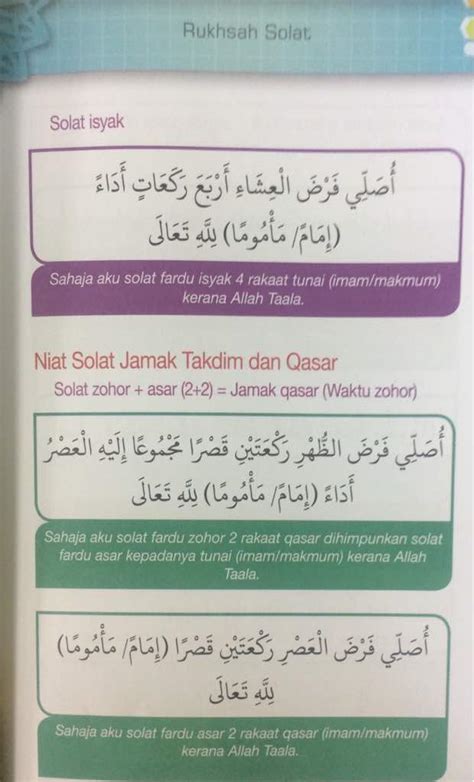 Rukhsah Solat
Solat isyak
أُصَلِّي فَرْضَ الْعِشَاءِ أَرْبَعَ رَكَعَاتٍ أَدَاءً
(إِمَامً/ مَأْمُومًا) لِلَّهِ تَعَالَى
Sahaja aku solat fardu isyak 4 rakaat tunai (imam/makmum)
kerana Allah Taala.
Niat Solat Jamak Takdim dan Qasar
Solat zohor + asar (2+2) = Jamak qasar (Waktu zohor)
أُصَلِّي فَرْضَ الظُّهْرِ رَكْعَتَيْنِ قَصْرًا مَجْمُوعًا إِلَيْهِ الْعَصْرُ
أَدَاءً (إِمَامً/ مَأْمُومًا) لِلَّهِ تَعَالَى
Sahaja aku solat fardu zohor 2 rakaat qasar dihimpunkan solat
fardu asar kepadanya tunai (imam/makmum) kerana Allah
Taala.
أُصَلِّي فَرْضَ الْعَصْرِ رَكْعَتَيْنِ قَصْرًا (إِمَامً/ مَأْمُومًا)
لِلَّهِ تَعَالَى
Sahaja aku solat fardu asar 2 rakaat qasar (imam/makmum)
kerana Allah Taala.